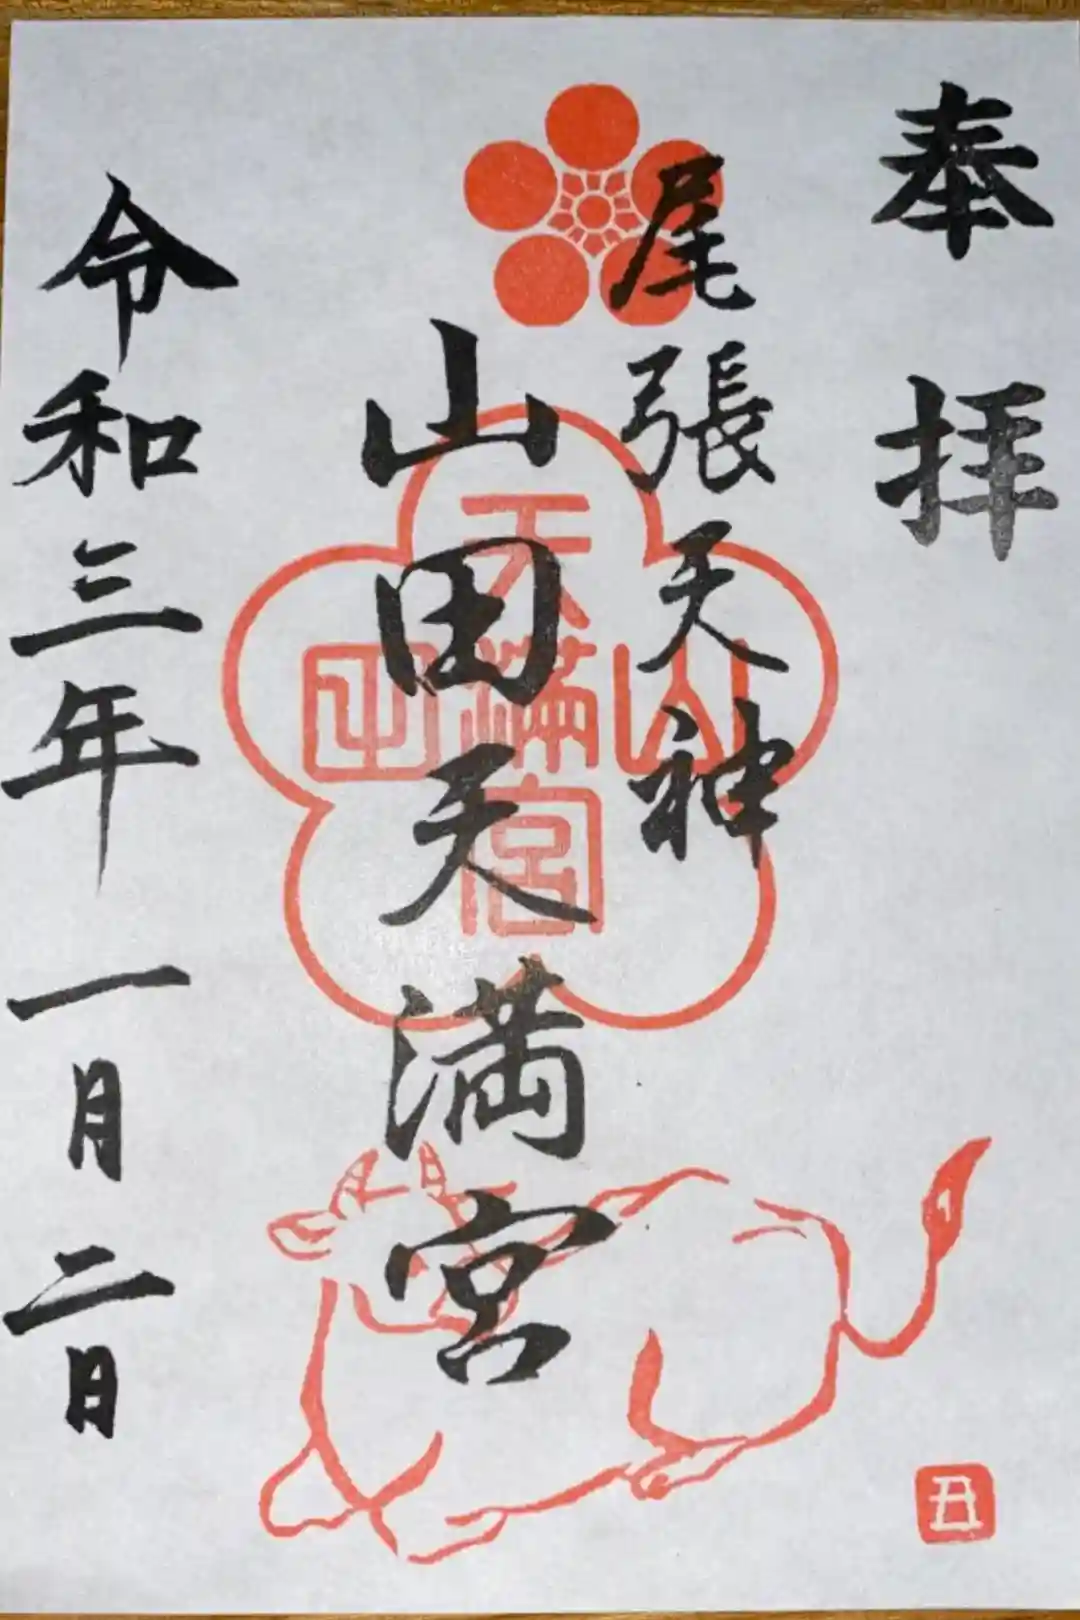 奉拝
尾張天神
山田天満宮
山田
天満宮
令和三年一月二日
丑